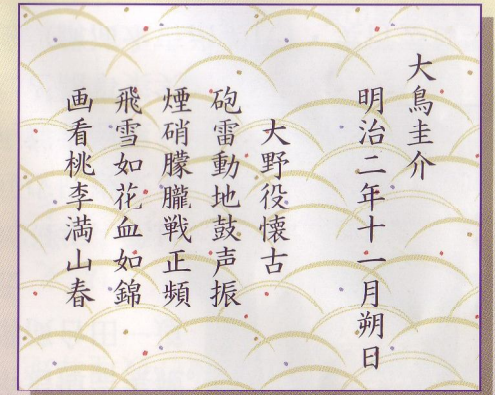 大鳥圭介
明治二年十一月朔日
大野役懐古
砲雷動地鼓声振
煙硝朦朧戦正頻
飛雪如花血如錦
画看桃李満山春